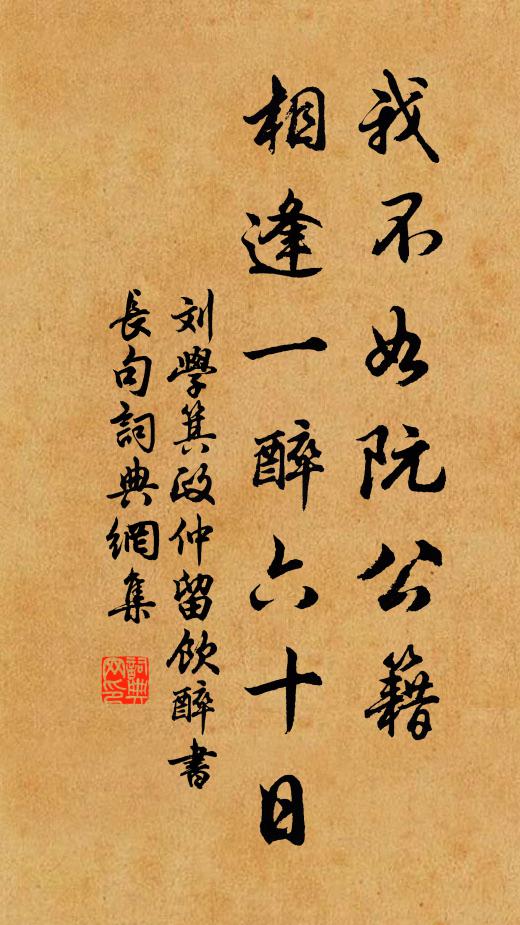 我不如阮公籍
相逢一醉六十日
刘學箕政仲留飲醉書
長句詞典網集
詞典
网印